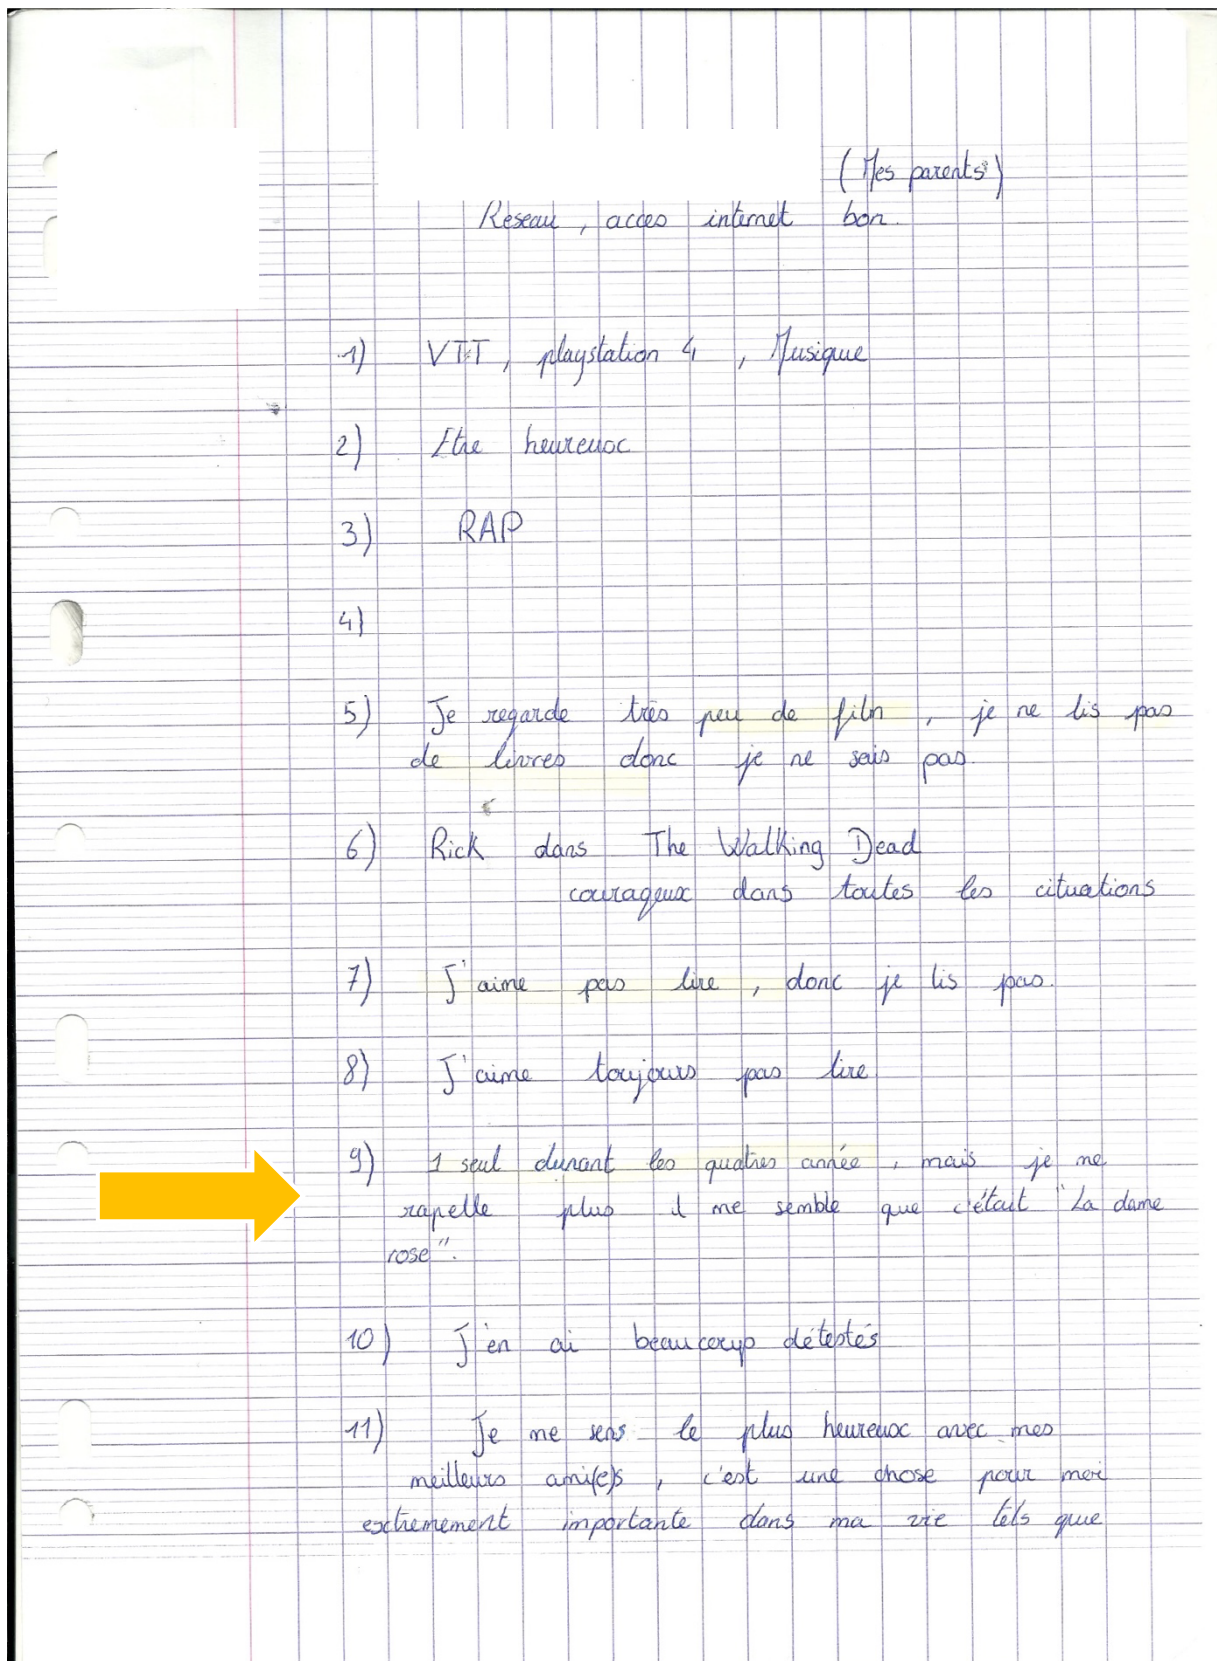 (Mes parents)
Réseau, acces internet bon.
1) VTT, playstation 4, Musique
2) Etre heureux
3) RAP
4)
5) Je regarde très peu de film, je ne lis pas
de livres donc je ne sais pas.
6) Rick dans The Walking Dead
courageux dans toutes les cituations
7) J'aime pas lire, donc je lis pas.
8) J'aime toujours pas lire
9) 1 seul durant les quatres année, mais je me
rapelle plus il me semble que c'était "La dame
rose".
10) J'en ai beaucoup détestés
11) Je me sens le plus heureux avec mes
meilleurs ami(e)s, c'est une chose pour moi
extremement importante dans ma vie tels que